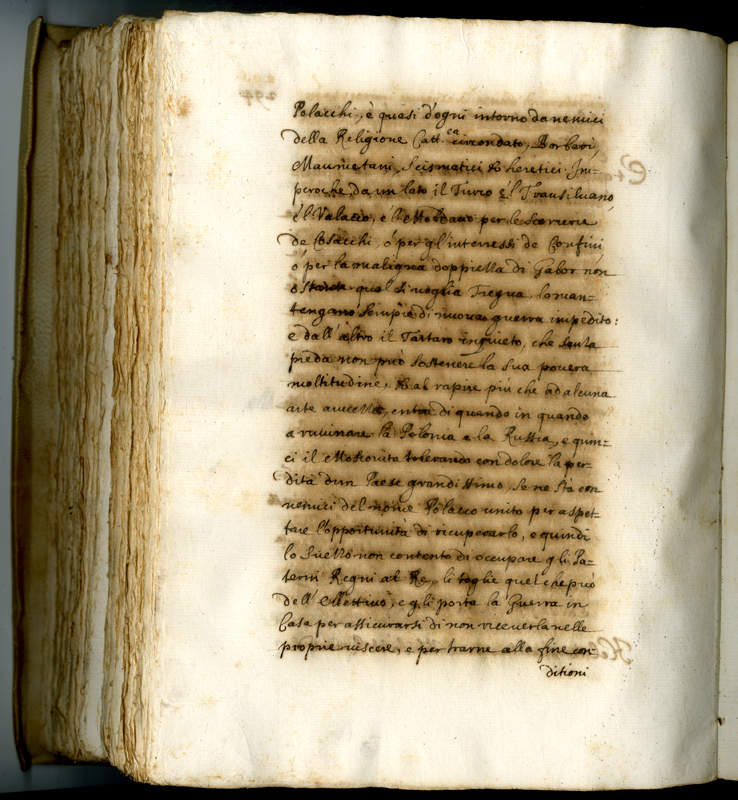 Polacchi, è quasi d'ogni intorno da nemici
della Religione Catt.ca circondato, Barbari,
Maumetani, Scismatici & heretici. Im=
peroche da un lato il Turco e'l Transiluano,
e'l Valacco, e'l Moldavo per le Scorrerie
de Cosacchi, ó per gl'interessi de Confini,
ó per la maligna doppiezza di Gabor non
ostante qual si uoglia Tregua, lo man=
tengano sempre di nuoua guerra impedito:
e dall'altro il Tartaro inquieto, che senza
preda non può sostenere la sua pouera
moltitudine, & al rapire più che ad alcuna
arte auuezza, entra di quando in quando
a ruuinare la Polonia e la Russia, e quin=
ci il Moscouita tolerando con dolore la per=
dita d'un Paese grandissimo, se ne sta con
nemici del nome Polacco unito per aspet=
tare l'opportunità di ricuperarlo, e quindi
lo Suezzo non contento di occupare gli Pa=
terni Regni al Re, li toglie quel che può
dell'Elettiuo, e gli porta la Guerra in
Casa per assicurarsi di non riceuerla nelle
proprie uiscere, e per trarne alla fine con=
ditioni